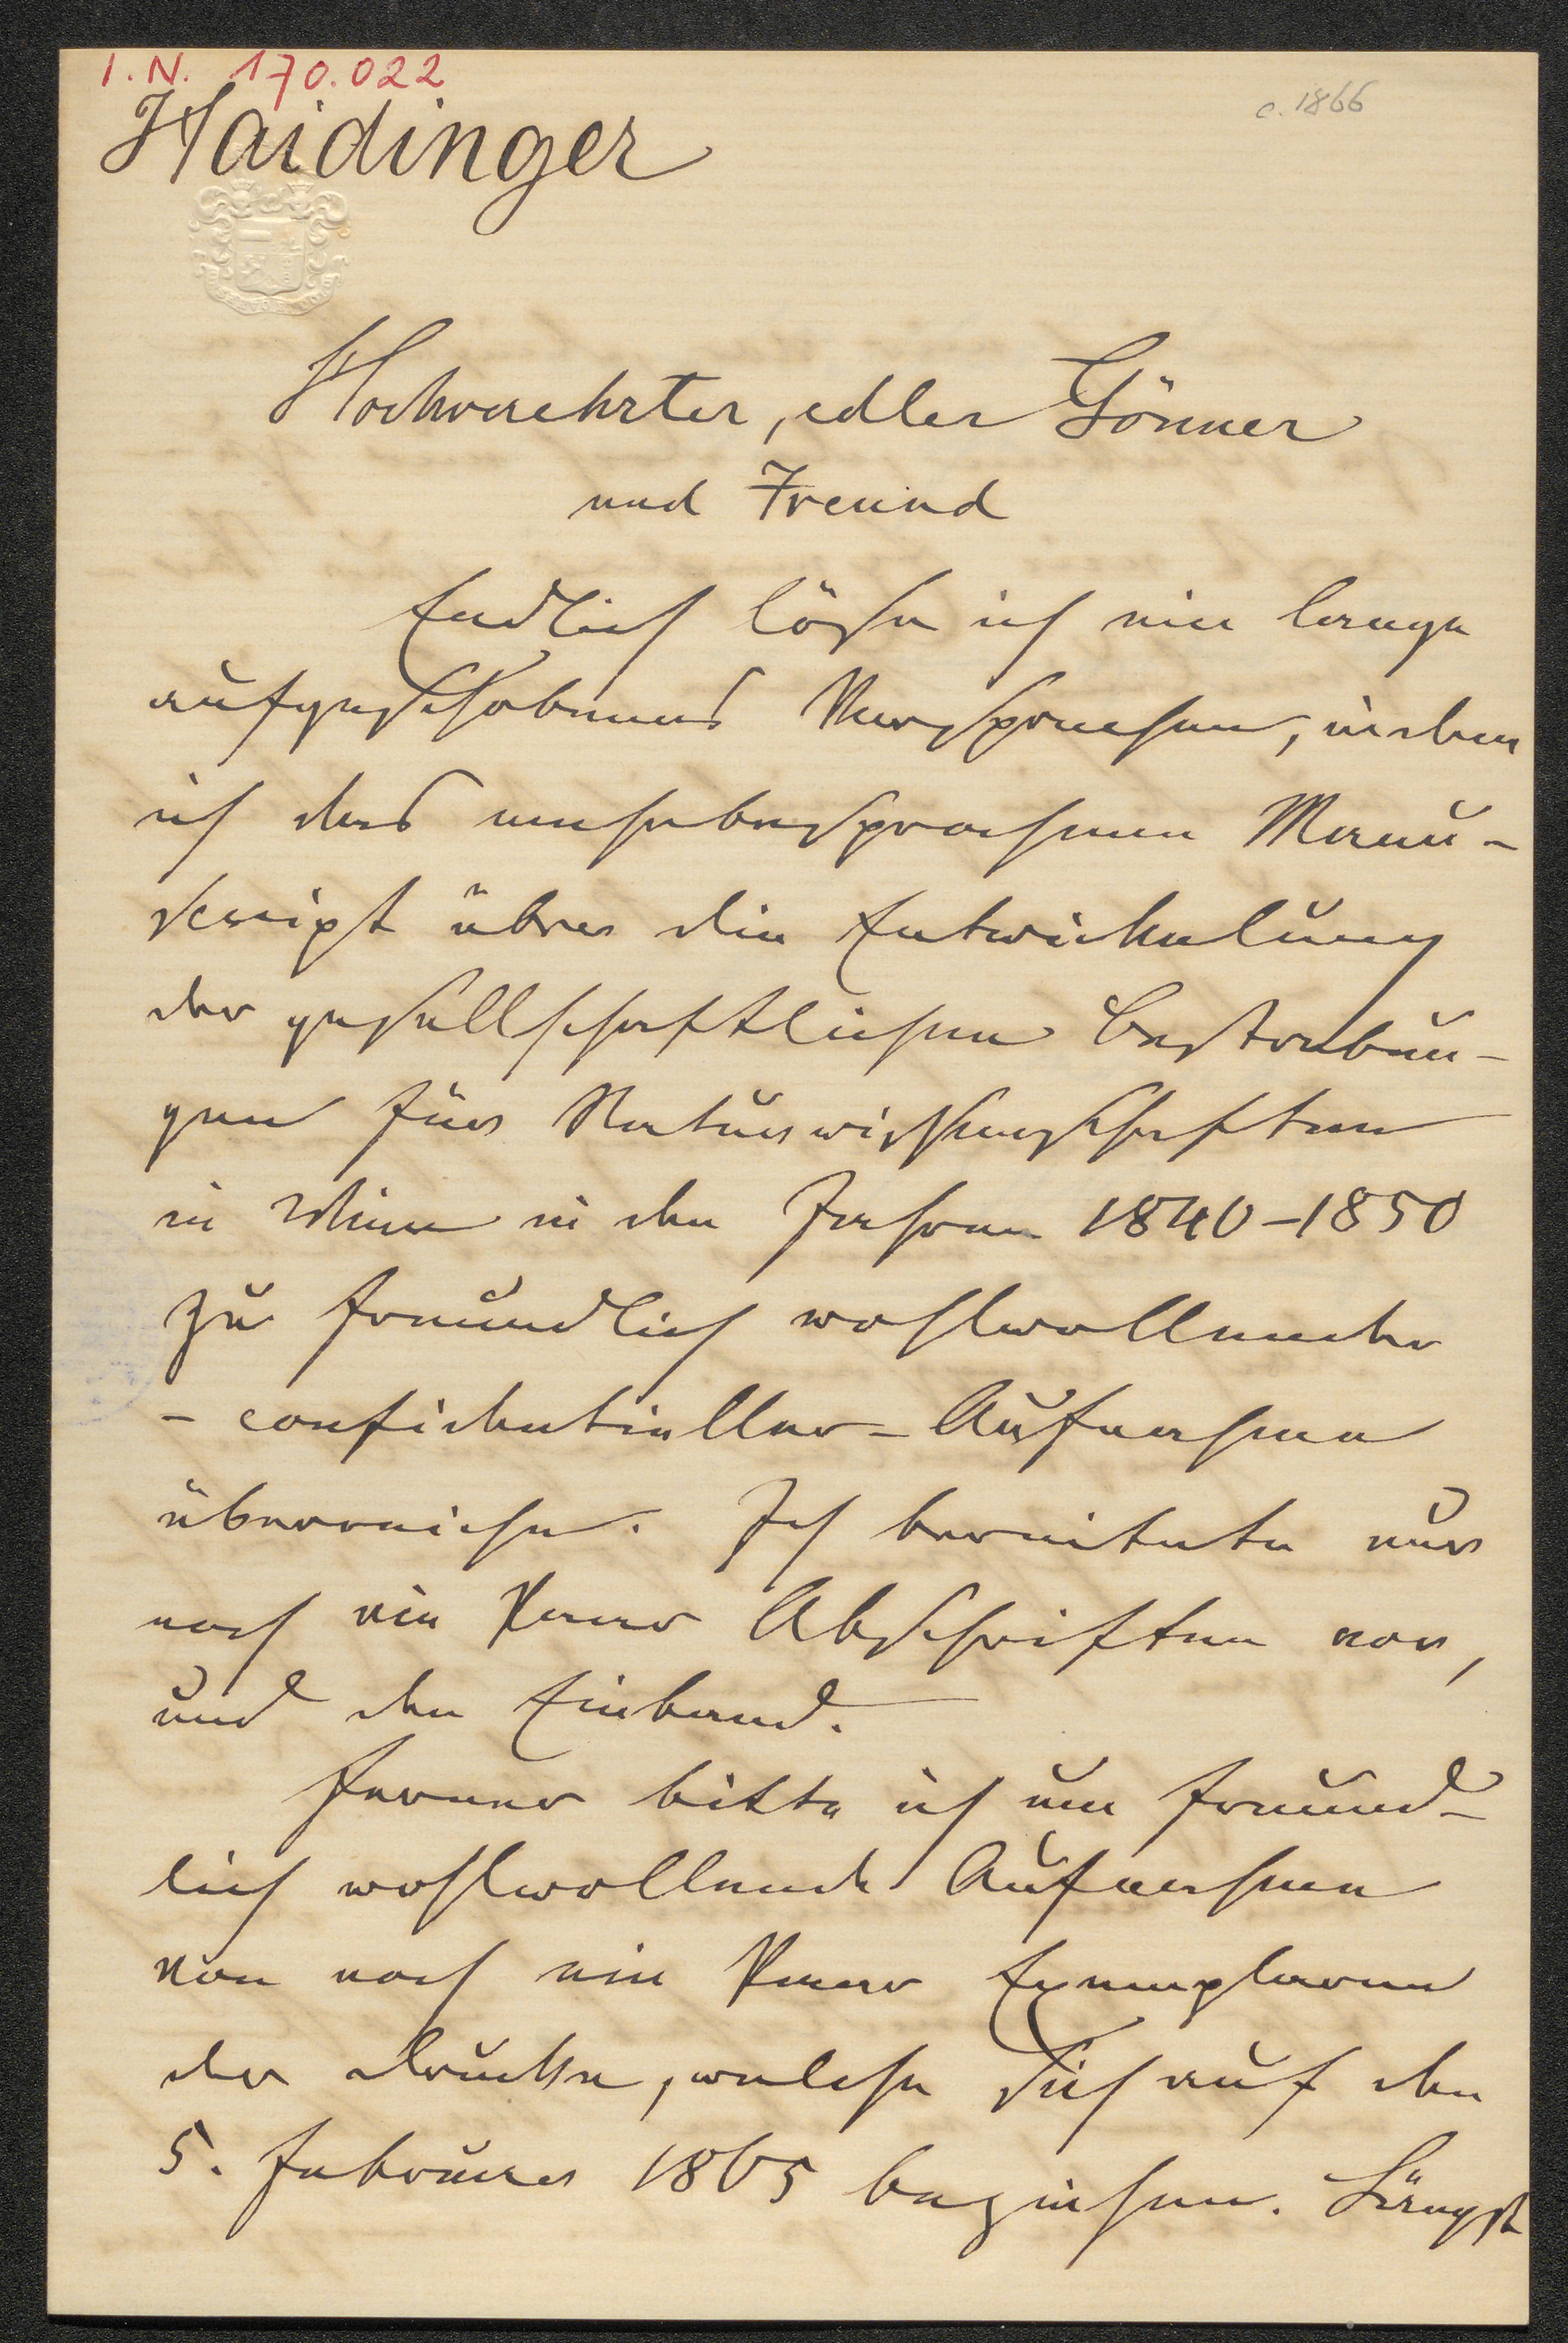 I.N. 170.022
c. 1866
Haidinger
Hochverehrter, edler Gönner
und Freund
Endlich löse ich ein lange
aufgeschobenes Versprechen, indem
ich das einstbesprochene Manu-
script über die Entwickelung
der gesellschaftlichen Bestrebun-
gen für Naturwissenschaften
in Wien in den Jahren 1840–1850
zu freundlich wohlwollender
– confidentieller – Aufnahme
überreiche. Ich bereitete nur
noch ein Paar Abschriften vor,
und den Einband.
Ferner bitte ich um freund-
lich wohlwollende Aufnahme
von noch ein Paar Exemplaren
der Drucke, welche sich auf den
5. Februar 1865 beziehen. Längst